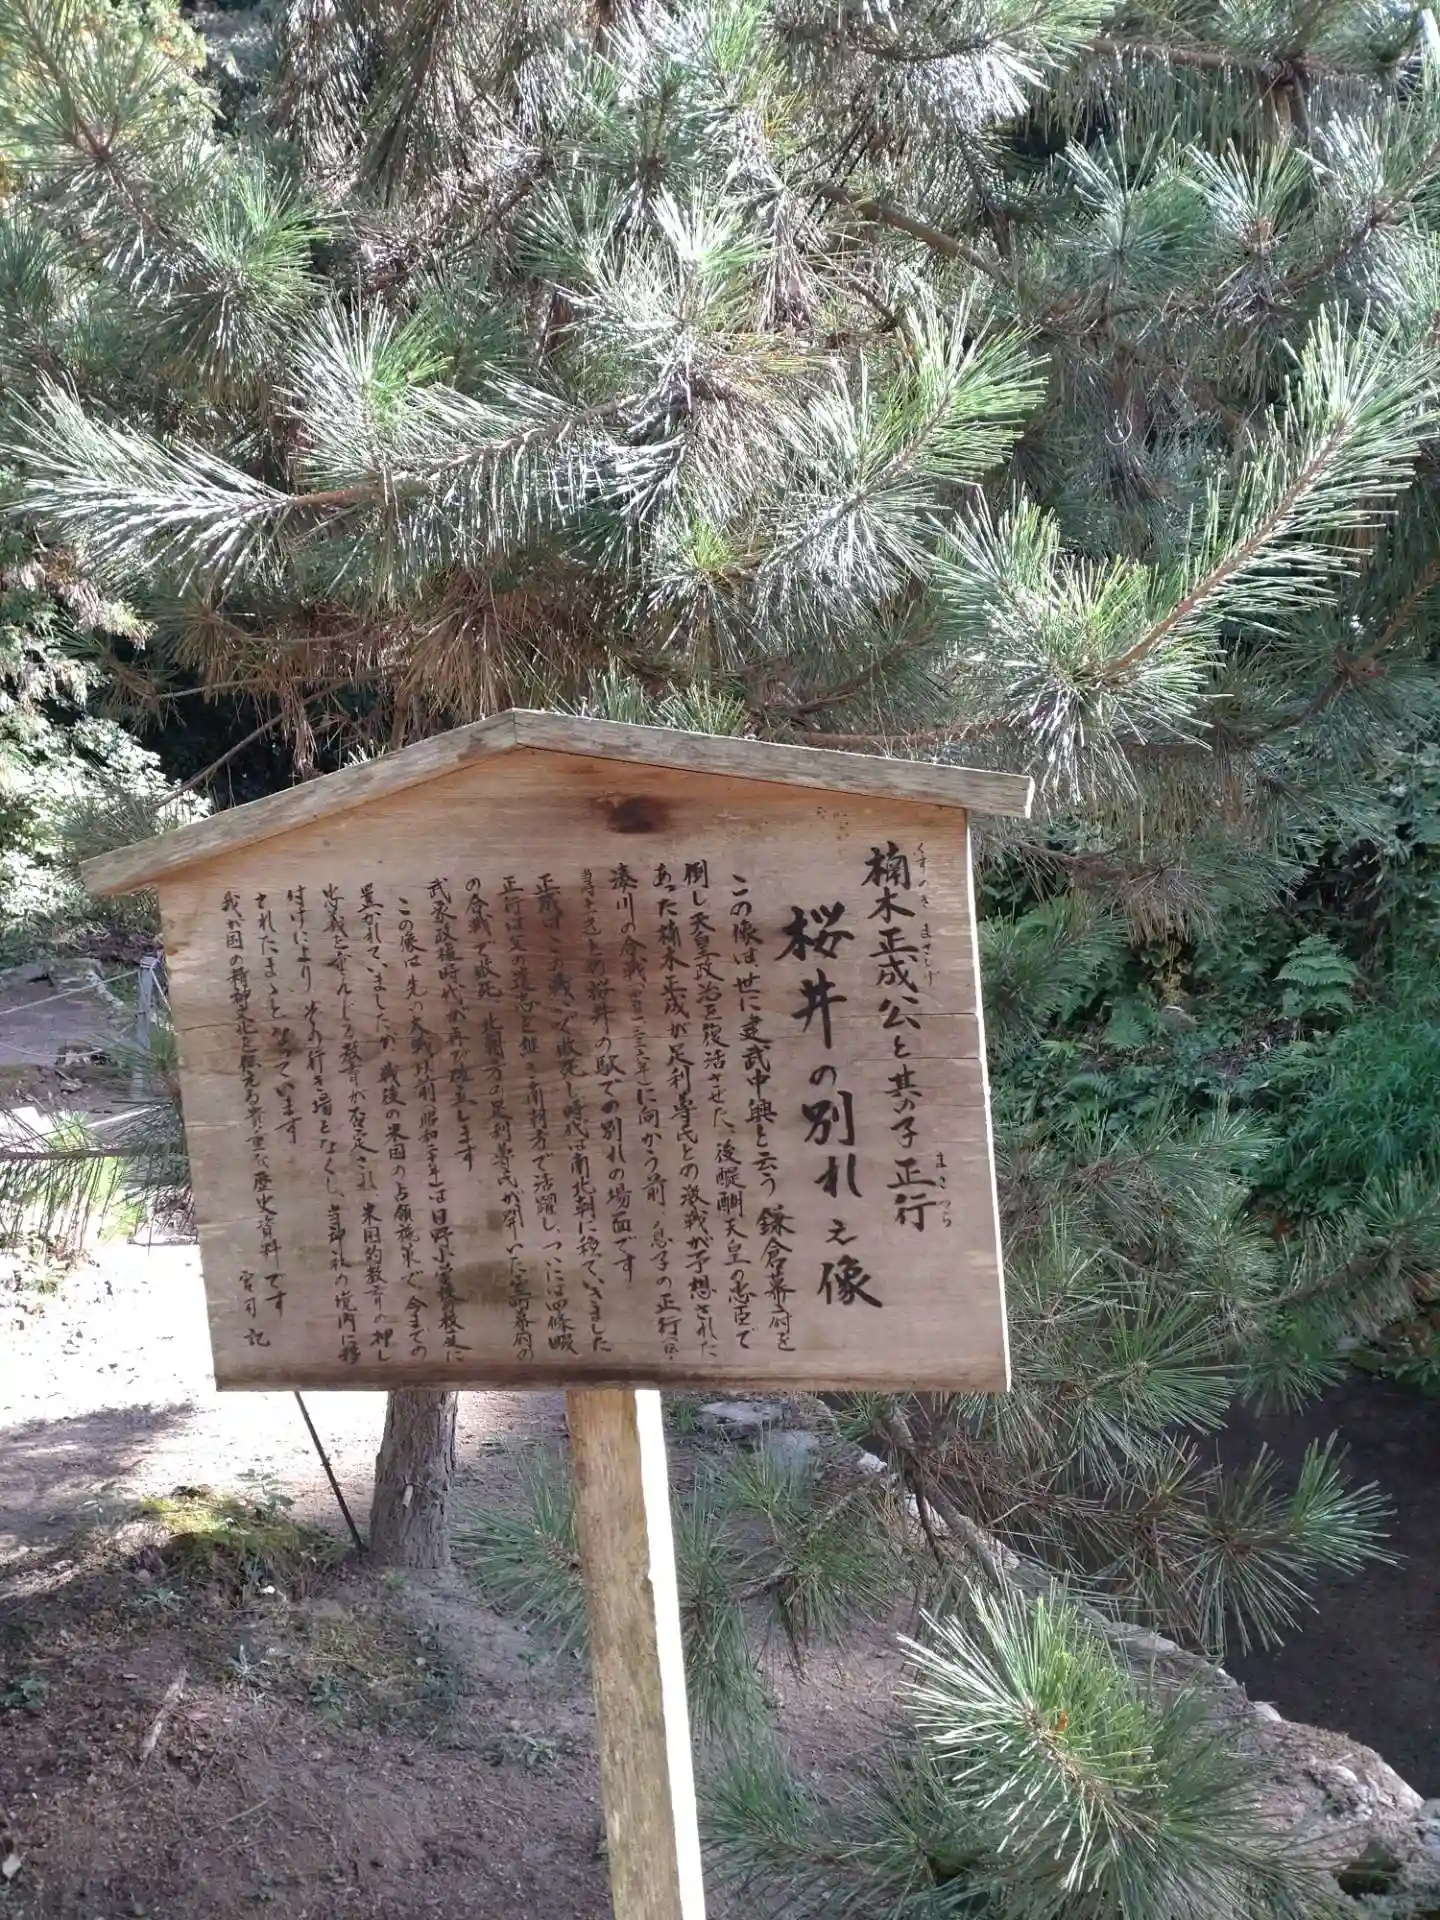 楠木正成公と其の子正行
くすのき まさしげ まさつら
桜井の別れ之像
この像は世に建武中興と云う鎌倉幕府を
倒し天皇政治を復活させた、後醍醐天皇の忠臣で
あった楠木正成が足利尊氏との激戦が予想された
湊川の合戦(西暦一三三六年)に向かう前、息子の正行(正行
当時十一才)との桜井の駅での別れの場面です
正成はこの戦いで敗死し時代は南北朝に移っていきました
正行は父の遺志を継ぎ南朝方で活躍し、ついには四條畷
の合戦で敗死 北朝方の足利尊氏が開いた室町幕府の
武家政権時代が再び成立します
この像は先の大戦以前(昭和二十年)は日野小学校の校庭に
置かれていましたが 戦後の米国の占領施策で今までの
忠義を重んじる教育が否定され 米国的教育の押し
付けにより その行き場をなくし、当神社の境内に移
されたまゝとなっています
我が国の精神文化を伝える貴重な歴史資料です
宮司 記